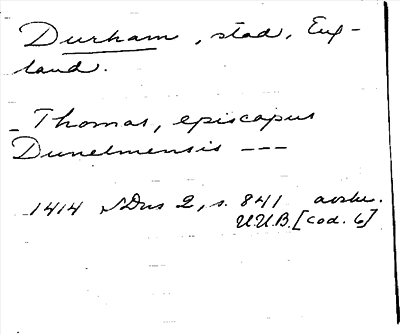 Durham, stad, Eng-
land.
- Thomas, episcopus
Dunelmensis ---
1414 SDns 2, s. 841 avskr.
U.U.B. [Cod. 6]